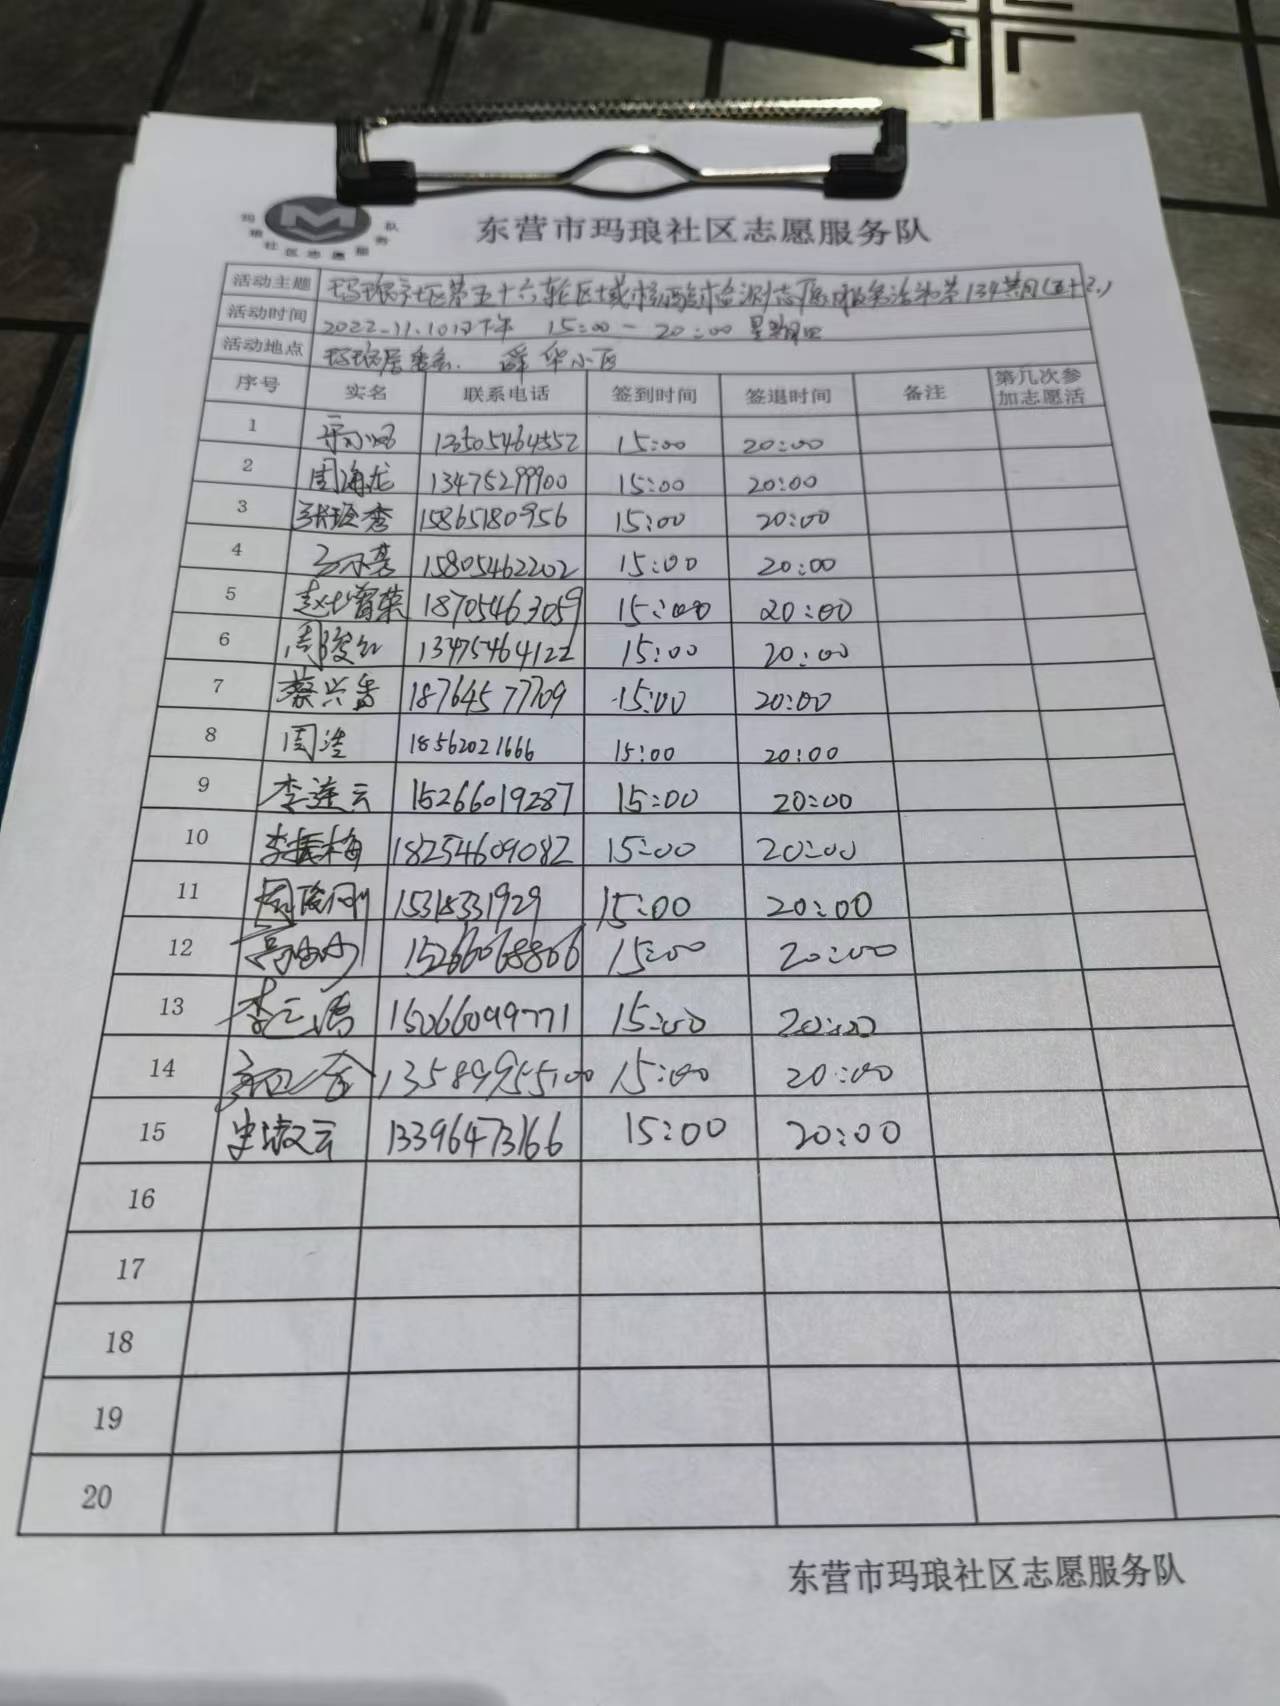 玛琅社区志愿服务队
东营市玛琅社区志愿服务队
活动主题 玛琅社区第五十六轮区域核酸检测志愿服务活动第134期(五十2.)
活动时间 2022.11.10日下午 15:00-20:00 星期四
活动地点 玛琅居委会. 舜华小区
序号 实名 联系电话 签到时间 签退时间 备注 第几次参加志愿活
1 13505464552 15:00 20:00
2 周海龙 13475299900 15:00 20:00
3 张玲秀 15865180956 15:00 20:00
4 15805462202 15:00 20:00
5 赵曾荣 18705463059 15:00 20:00
6 周俊红 13475464122 15:00 20:00
7 蔡兴香 18764577709 15:00 20:00
8 周洁 18562021666 15:00 20:00
9 李莲云 15266019287 15:00 20:00
10 李振梅 18254609082 15:00 20:00
11 周隆刚 15318331929 15:00 20:00
12 15266068806 15:00 20:00
13 李三清 15266099771 15:00 20:00
14 13589955100 15:00 20:00
15 史淑云 13396473166 15:00 20:00
16
17
18
19
20
东营市玛琅社区志愿服务队